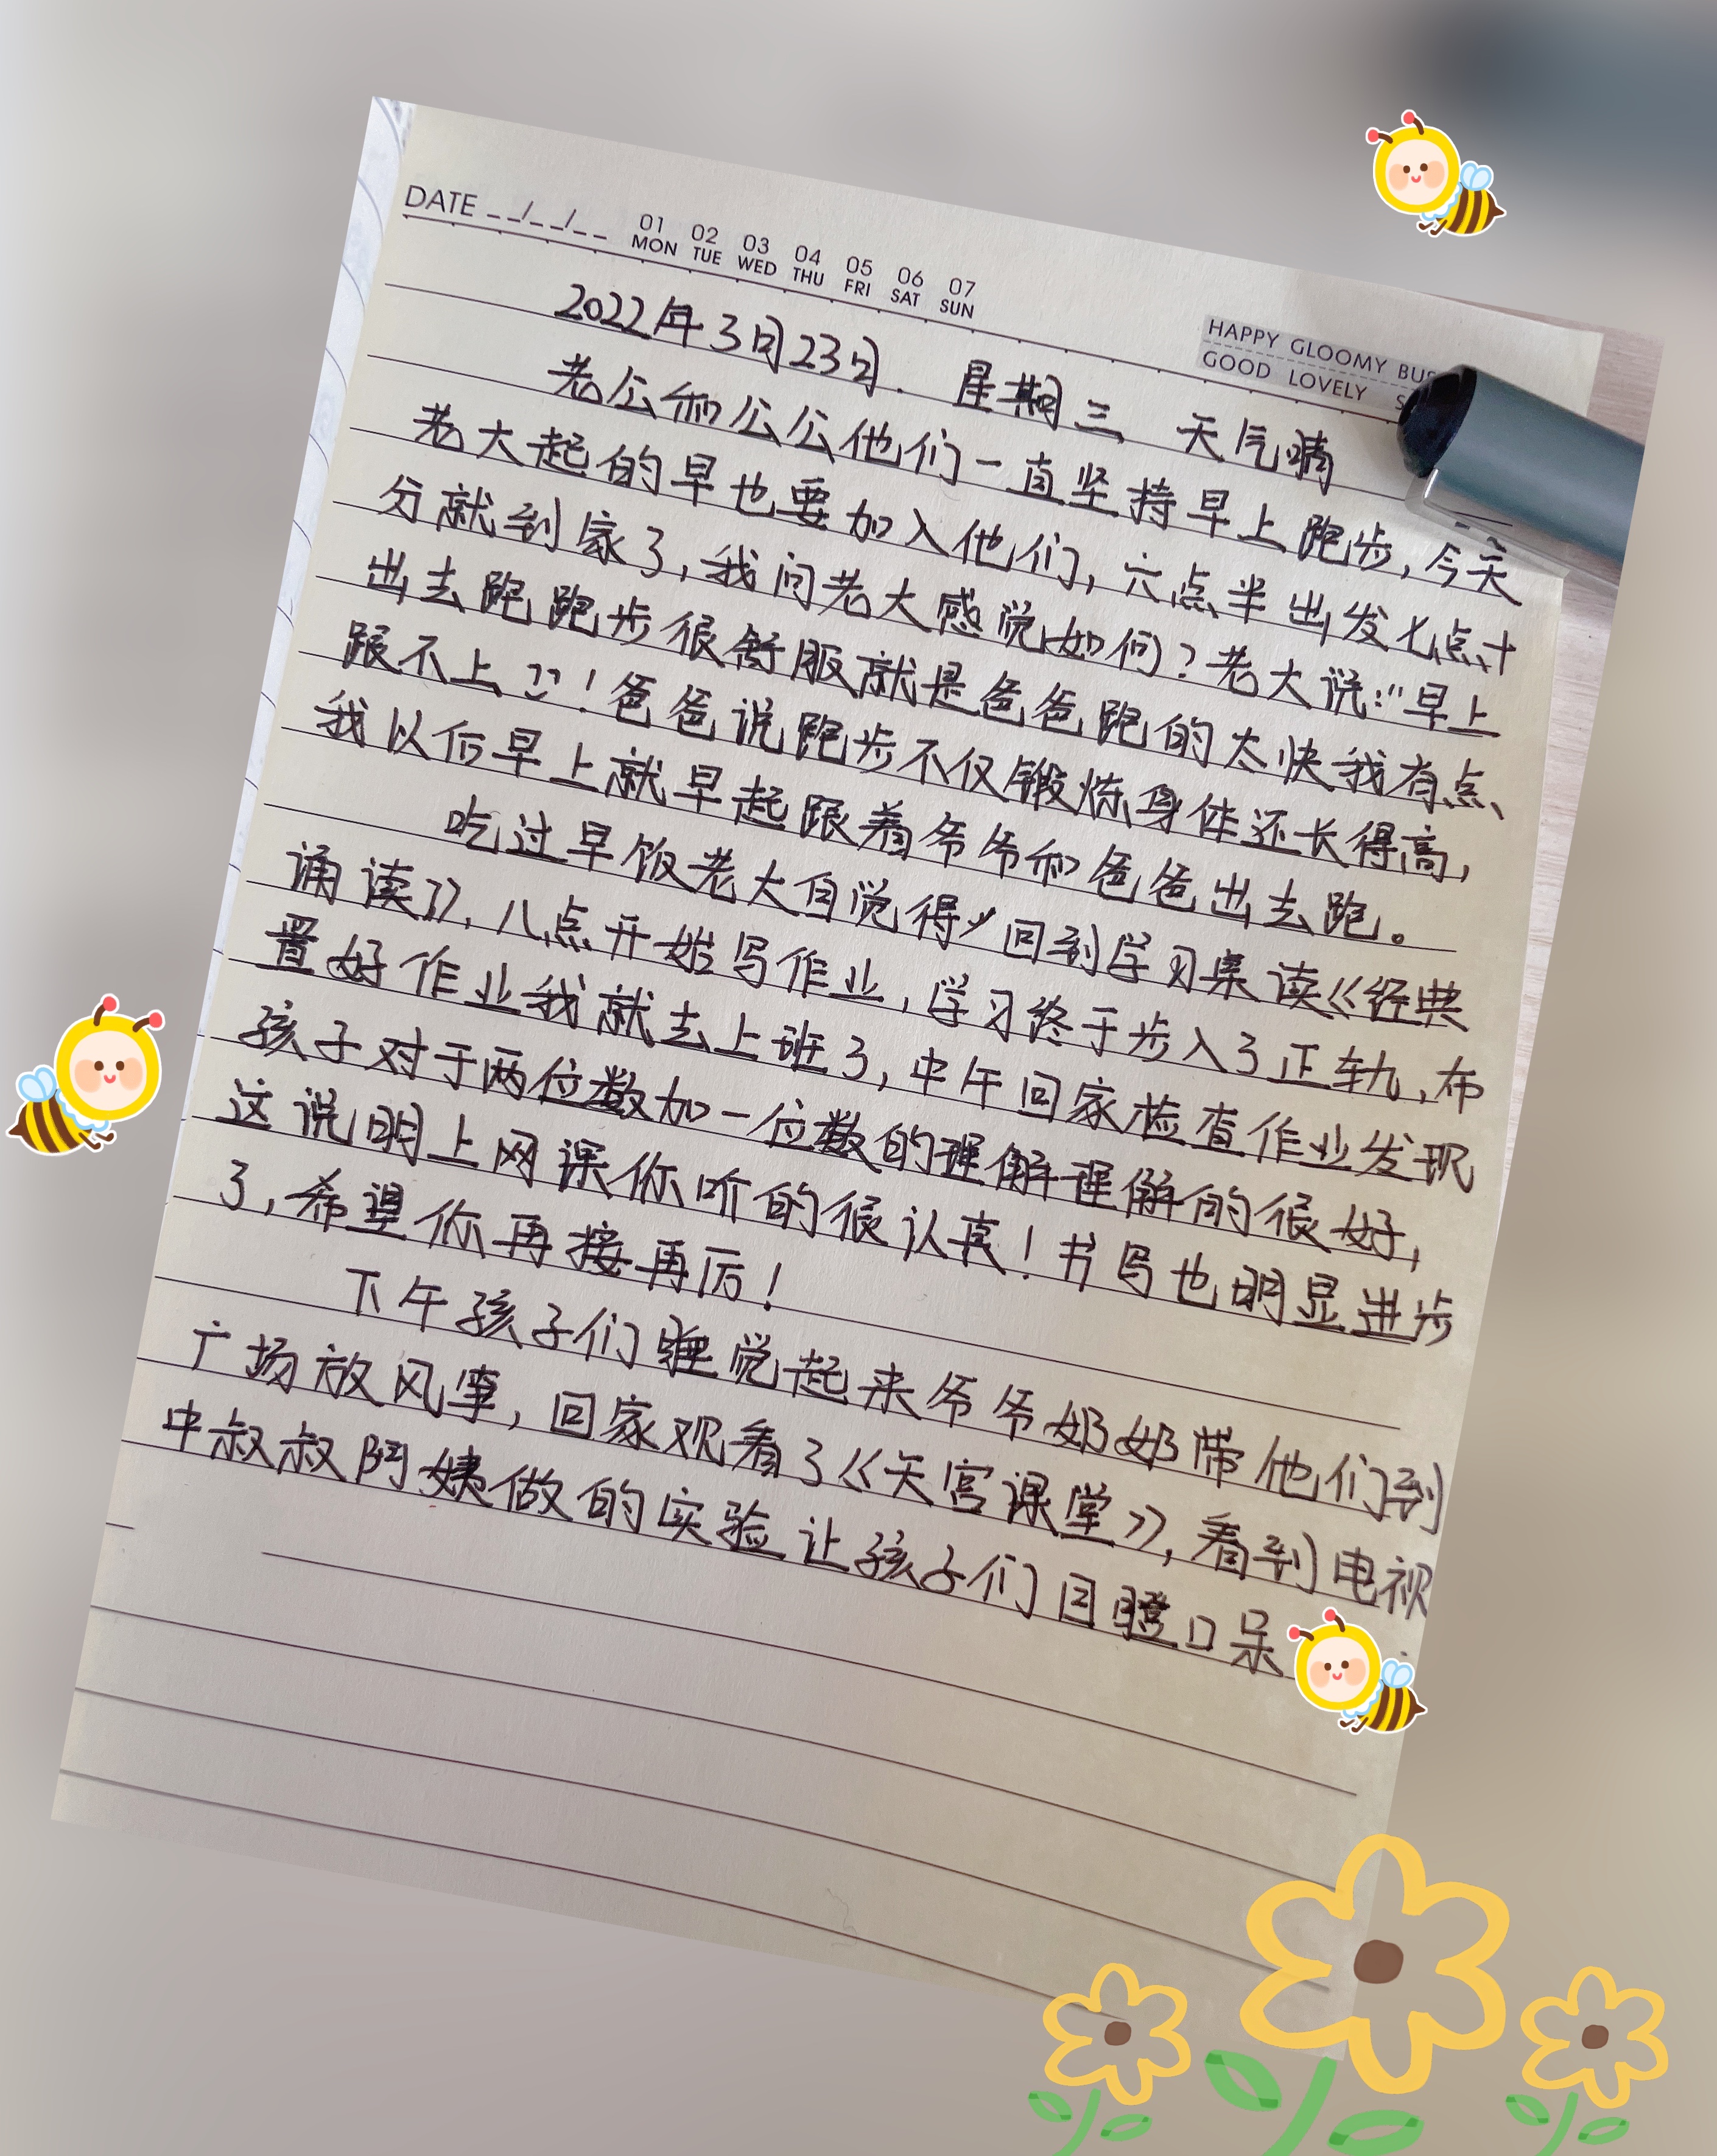 DATE __/__/__ 01 02 03 04 05 06 07
MON TUE WED THU FRI SAT SUN
HAPPY GLOOMY
GOOD LOVELY
2022年3月23日. 星期三 天气晴
老公和公公他们一直坚持早上跑步,今天
老大起的早也要加入他们,六点半出发七点十
分就到家了,我问老大感觉如何?老大说:"早上
出去跑跑步很舒服就是爸爸跑的太快我有点、
跟不上!爸爸说跑步不仅锻炼身体还长得高,
我以后早上就早起跟着爷爷和爸爸出去跑。
吃过早饭老大自觉得回到学习桌读《经典
诵读》,八点开始写作业,学习终于步入了正轨,布
置好作业我就去上班了,中午回家检查作业发现
孩子对于两位数加一位数的理解理解的很好,
这说明上网课你听的很认真!书写也明显进步
了,希望你再接再厉!
下午孩子们睡觉起来爷爷奶奶带他们到
广场放风筝,回家观看了《天宫课堂》,看到电视
中叔叔阿姨做的实验让孩子们目瞪口呆